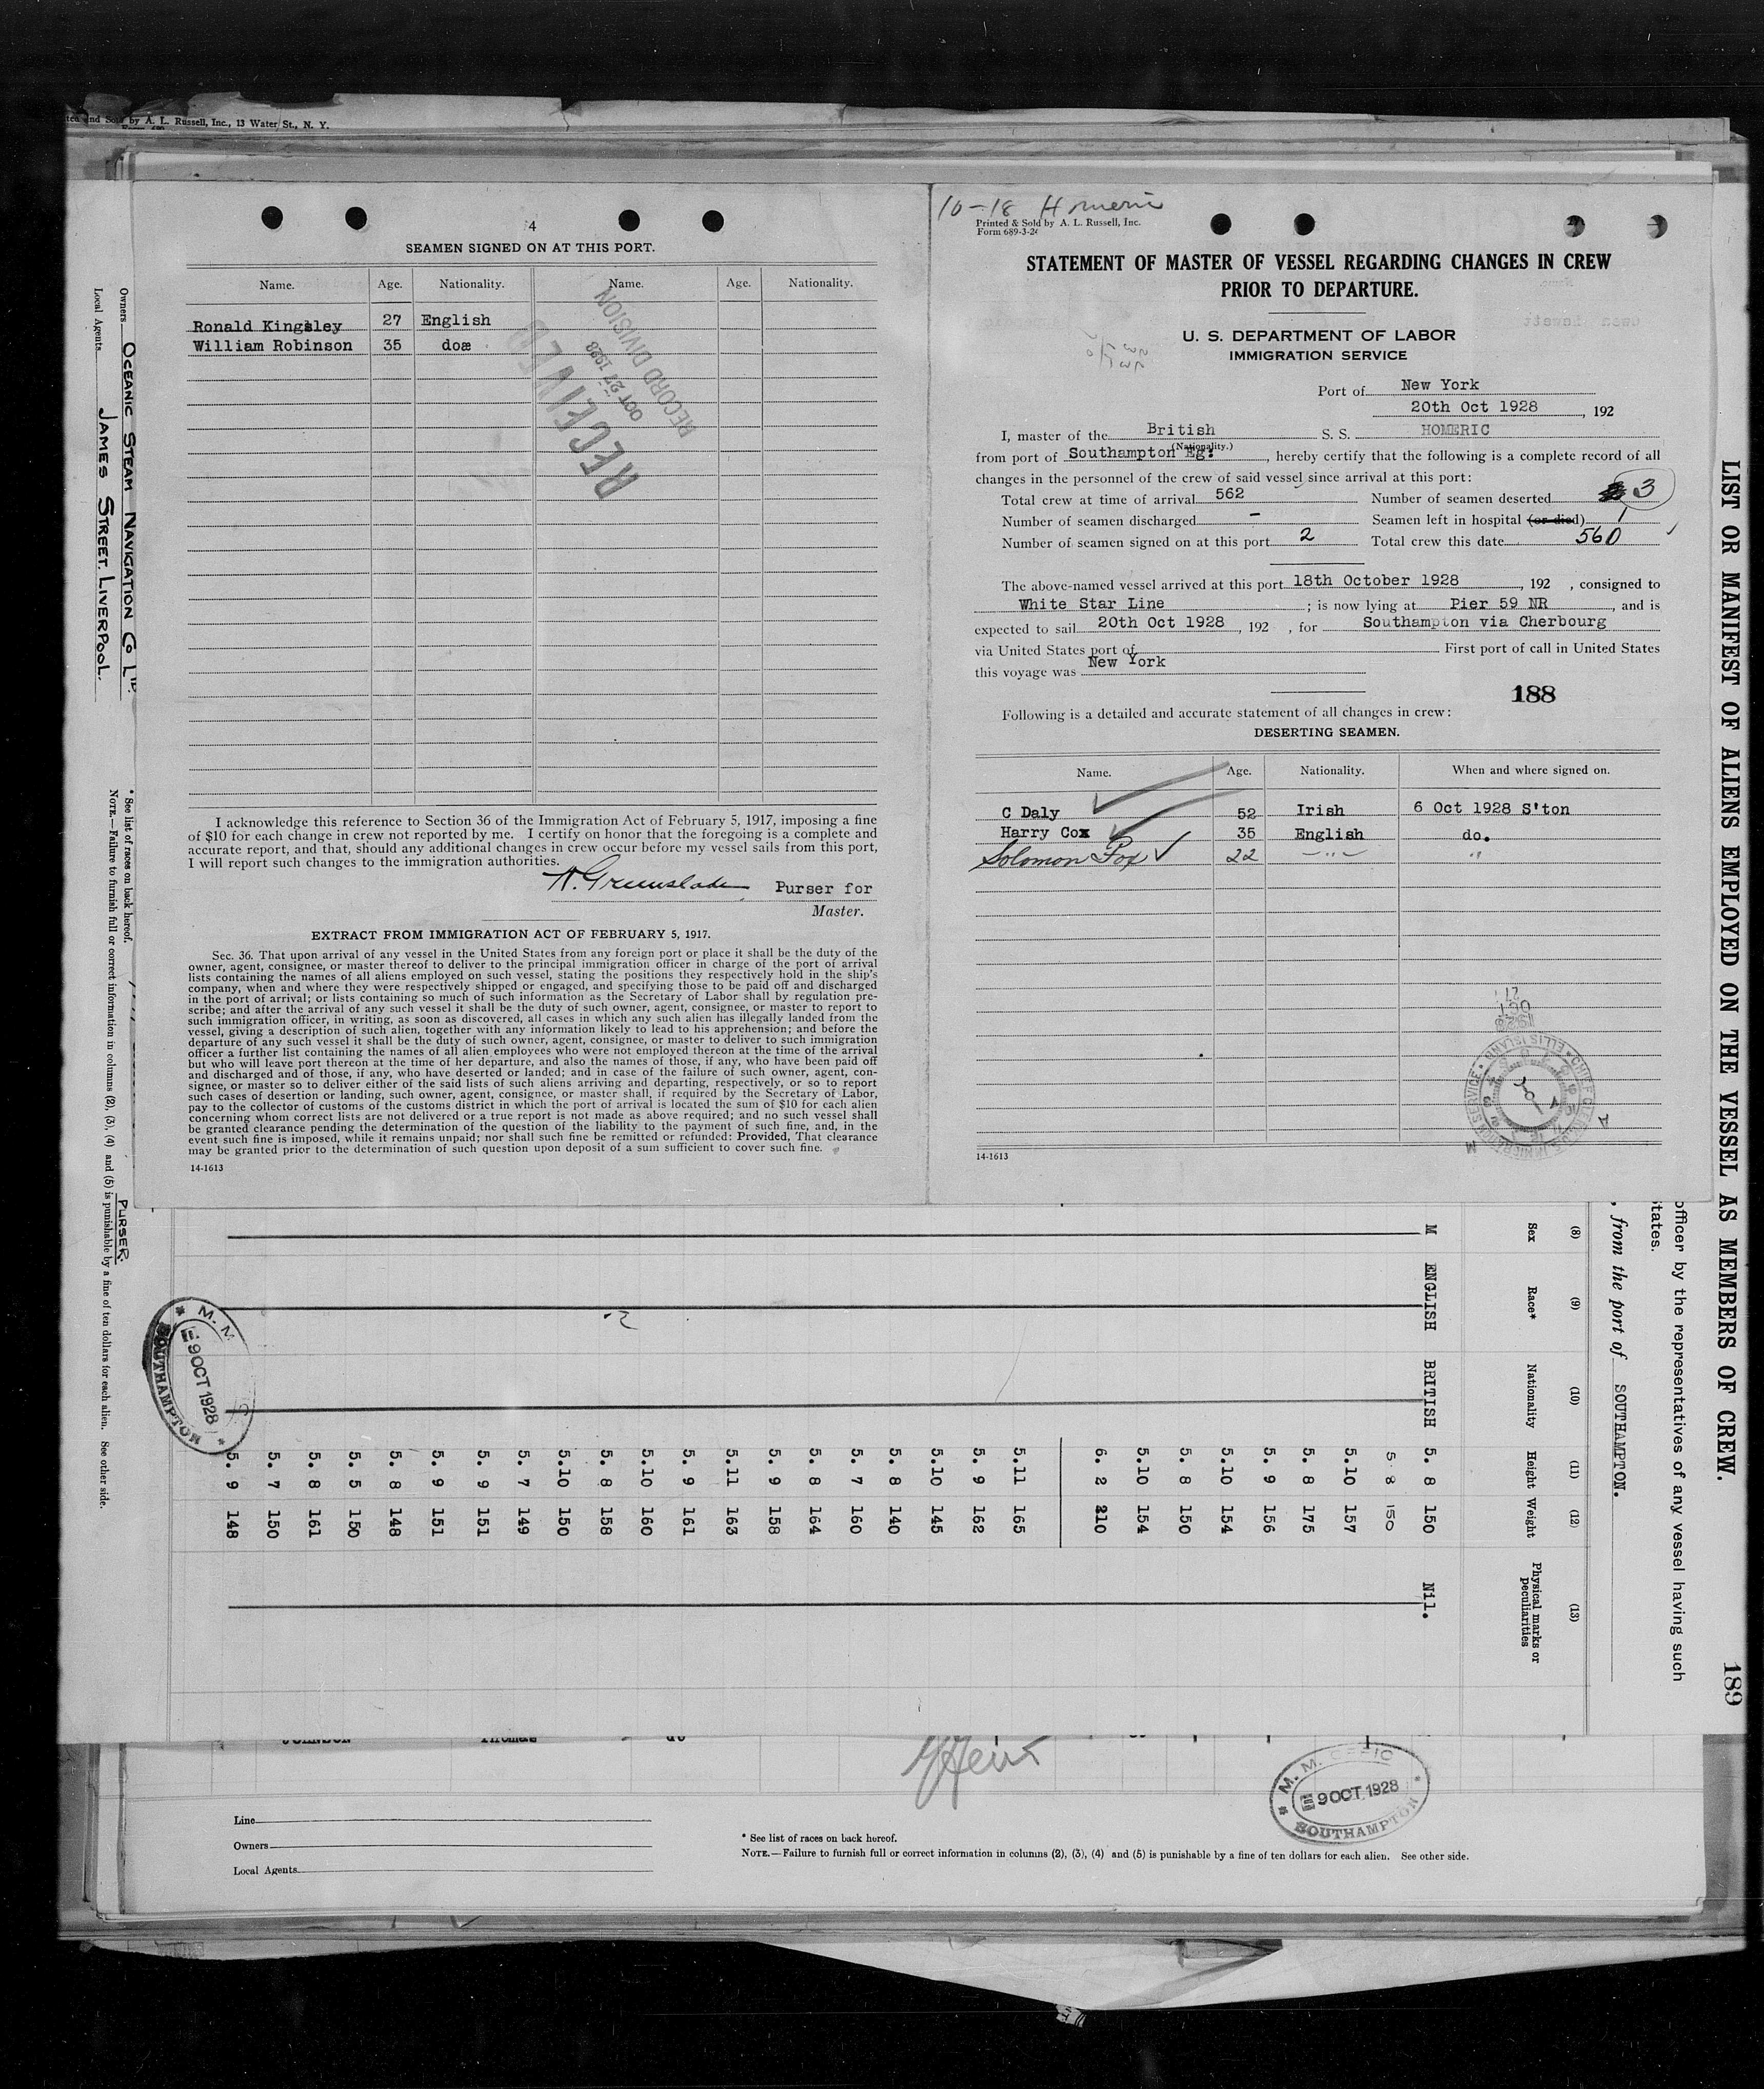 by A. L. Russell, Inc., 13 Water St., N. Y.
4
SEAMEN SIGNED ON AT THIS PORT.
Name. Age. Nationality. Name. Age. Nationality.
Ronald Kingsley 27 English
William Robinson 35 do
RECEIVED
OCT 27 1928
RECORD DIVISION
I acknowledge this reference to Section 36 of the Immigration Act of February 5, 1917, imposing a fine
of $10 for each change in crew not reported by me. I certify on honor that the foregoing is a complete and
accurate report, and that, should any additional changes in crew occur before my vessel sails from this port,
I will report such changes to the immigration authorities.
Greenslade Purser for
Master.
EXTRACT FROM IMMIGRATION ACT OF FEBRUARY 5, 1917.
Sec. 36. That upon arrival of any vessel in the United States from any foreign port or place it shall be the duty of the
owner, agent, consignee, or master thereof to deliver to the principal immigration officer in charge of the port of arrival
lists containing the names of all aliens employed on such vessel, stating the positions they respectively hold in the ship's
company, when and where they were respectively shipped or engaged, and specifying those to be paid off and discharged
in the port of arrival; or lists containing so much of such information as the Secretary of Labor shall by regulation pre-
scribe; and after the arrival of any such vessel it shall be the duty of such owner, agent, consignee, or master to report to
such immigration officer, in writing, as soon as discovered, all cases in which any such alien has illegally landed from the
vessel, giving a description of such alien, together with any information likely to lead to his apprehension; and before the
departure of any such vessel it shall be the duty of such owner, agent, consignee, or master to deliver to such immigration
officer a further list containing the names of all alien employees who were not employed thereon at the time of the arrival
but who will leave port thereon at the time of her departure, and also the names of those, if any, who have been paid off
and discharged and of those, if any, who have deserted or landed; and in case of the failure of such owner, agent, con-
signee, or master so to deliver either of the said lists of such aliens arriving and departing, respectively, or so to report
such cases of desertion or landing, such owner, agent, consignee, or master shall, if required by the Secretary of Labor,
pay to the collector of customs of the customs district in which the port of arrival is located the sum of $10 for each alien
concerning whom correct lists are not delivered or a true report is not made as above required; and no such vessel shall
be granted clearance pending the determination of the question of the liability to the payment of such fine, and, in the
event such fine is imposed, while it remains unpaid; nor shall such fine be remitted or refunded: Provided, That clearance
may be granted prior to the determination of such question upon deposit of a sum sufficient to cover such fine.
14-1613
10-18 Homeric
Printed & Sold by A. L. Russell, Inc.
Form 689-3-26
STATEMENT OF MASTER OF VESSEL REGARDING CHANGES IN CREW
PRIOR TO DEPARTURE.
U. S. DEPARTMENT OF LABOR
IMMIGRATION SERVICE
Port of New York
20th Oct 1928, 192
I, master of the British S. S. HOMERIC
(Nationality.)
from port of Southampton Eg:, hereby certify that the following is a complete record of all
changes in the personnel of the crew of said vessel since arrival at this port:
Total crew at time of arrival 562 Number of seamen deserted 3
Number of seamen discharged - Seamen left in hospital (or died) 1
Number of seamen signed on at this port 2 Total crew this date 560
The above-named vessel arrived at this port 18th October 1928, 192 , consigned to
White Star Line; is now lying at Pier 59 NR, and is
expected to sail 20th Oct 1928, 192 , for Southampton via Cherbourg
via United States port of First port of call in United States
this voyage was New York
188
Following is a detailed and accurate statement of all changes in crew:
DESERTING SEAMEN.
Name. Age. Nationality. When and where signed on.
C Daly 52 Irish 6 Oct 1928 S'ton
Harry Cox 35 English do.
Solomon Fox 22 - " - "
14-1613
Owners OCEANIC STEAM NAVIGATION CO LTD.
Local Agents JAMES STREET. LIVERPOOL.
* See list of races on back hereof.
NOTE.—Failure to furnish full or correct information in columns (2), (3), (4) and (5) is punishable by a fine of ten dollars for each alien. See other side.
PURSER.
LIST OR MANIFEST OF ALIENS EMPLOYED ON THE VESSEL AS MEMBERS OF CREW.
189
officer by the representatives of any vessel having such
, from the port of SOUTHAMPTON.
(8) (9) (10) (11) (12) (13)
Sex Race* Nationality Height Weight Physical marks or peculiarities
M ENGLISH BRITISH 5. 8 150 Nil.
5 8 150
5.10 157
5. 8 175
5. 9 156
5.10 154
5. 8 150
5.10 154
6. 2 210
5.11 165
5. 9 162
5.10 145
5. 8 140
5. 7 160
5. 8 164
5. 9 158
5.11 163
5. 9 161
5.10 160
5. 8 158
5.10 150
5. 7 149
5. 9 151
5. 9 151
5. 8 148
5. 5 150
5. 8 161
5. 7 150
5. 9 148
M. M.
9 OCT 1928
SOUTHAMPTON
JOHNSON Thomas do
M. M. OFFIC
9 OCT 1928
SOUTHAMPTON
Line
Owners
Local Agents
* See list of races on back hereof.
NOTE.—Failure to furnish full or correct information in columns (2), (3), (4) and (5) is punishable by a fine of ten dollars for each alien. See other side.